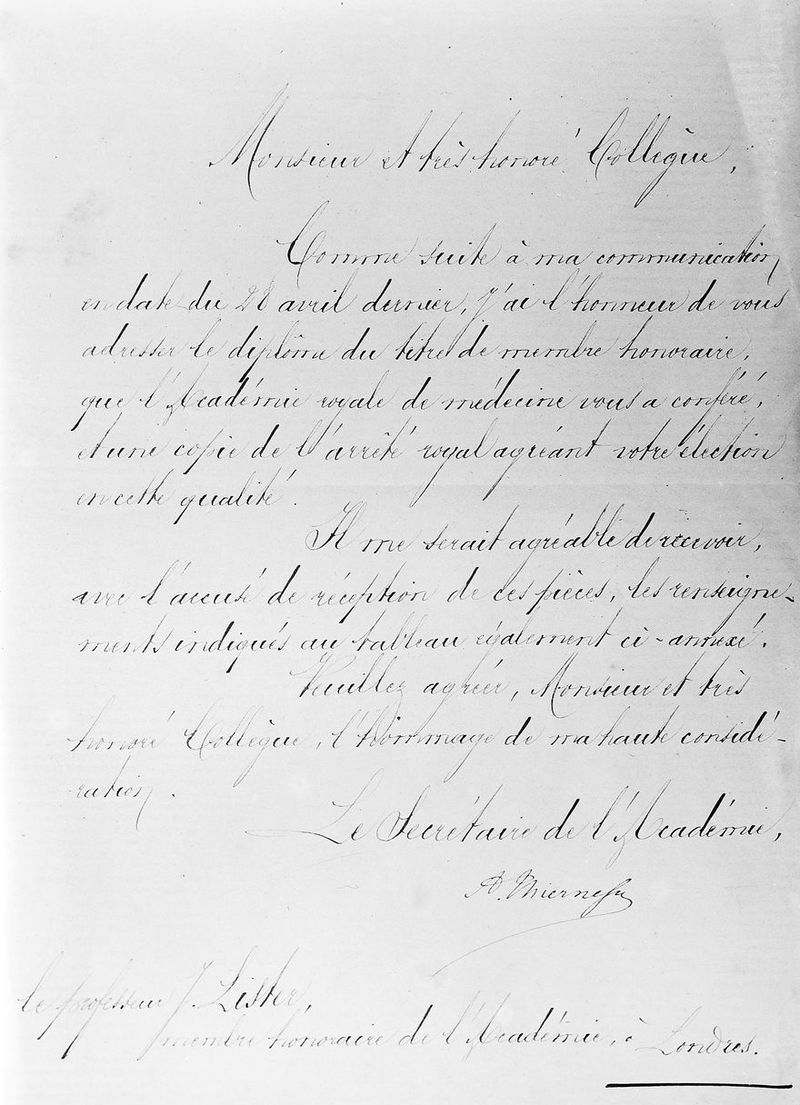 Monsieur et très honoré Collègue,
Comme suite à ma communication
en date du 28 avril dernier, j'ai l'honneur de vous
adresser le diplôme du titre de membre honoraire,
que l'Académie royale de médecine vous a conféré,
et une copie de l'arrêté royal agréant votre élection
en cette qualité.
Il me serait agréable de recevoir,
avec l'accusé de réception de ces pièces, les renseigne-
ments indiqués au tableau également ci-annexé.
Veuillez agréer, Monsieur et très
honoré Collègue, l'hommage de ma haute considé-
ration.
Le Secrétaire de l'Académie,
le professeur J. Lister,
membre honoraire de l'Académie, à Londres.